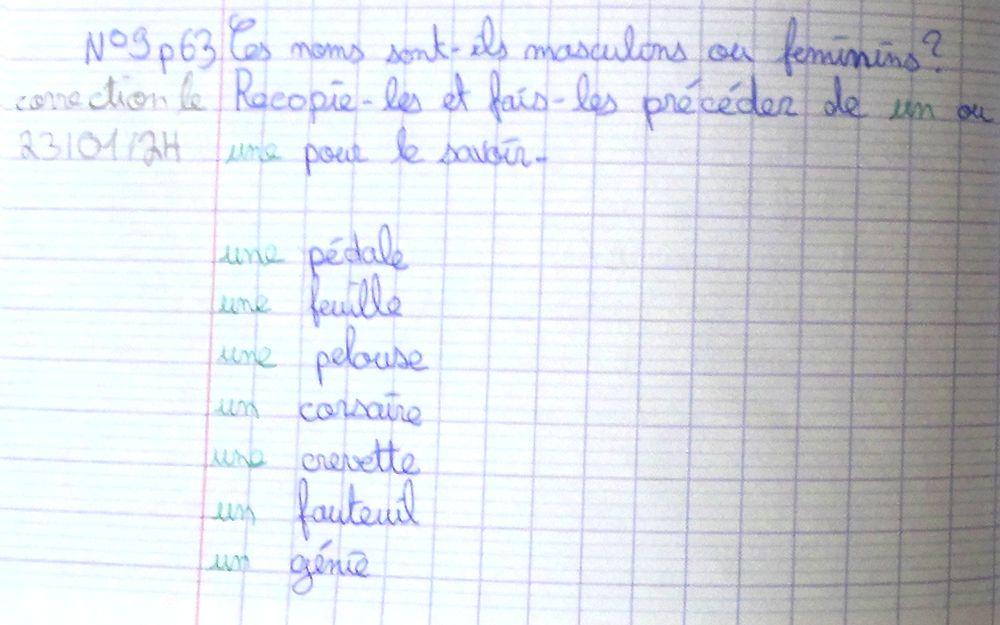 N°9 p63 Ces noms sont-ils masculons ou feminins?
correction le Recopie-les et fais-les précéder de un ou
23/01/24 une pour le savoir.
une pédale
une feuille
une pelouse
un corsaire
une crevette
un fauteuil
un génie